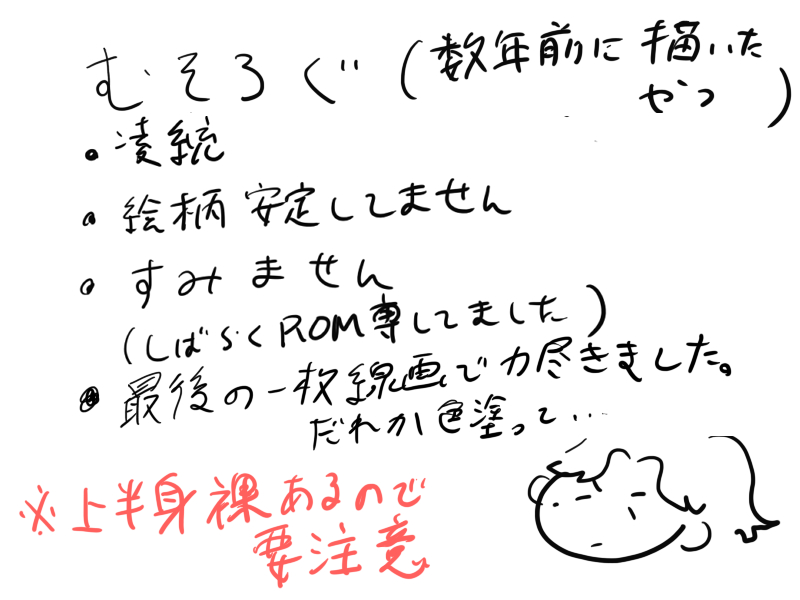 むそろぐ(数年前に描いた
やつ)
・凌統
・絵柄安定してません
・すみません
(しばらくROM専してました)
・最後の一枚線画で力尽きました。
だれか色塗って…
※上半身裸あるので
要注意